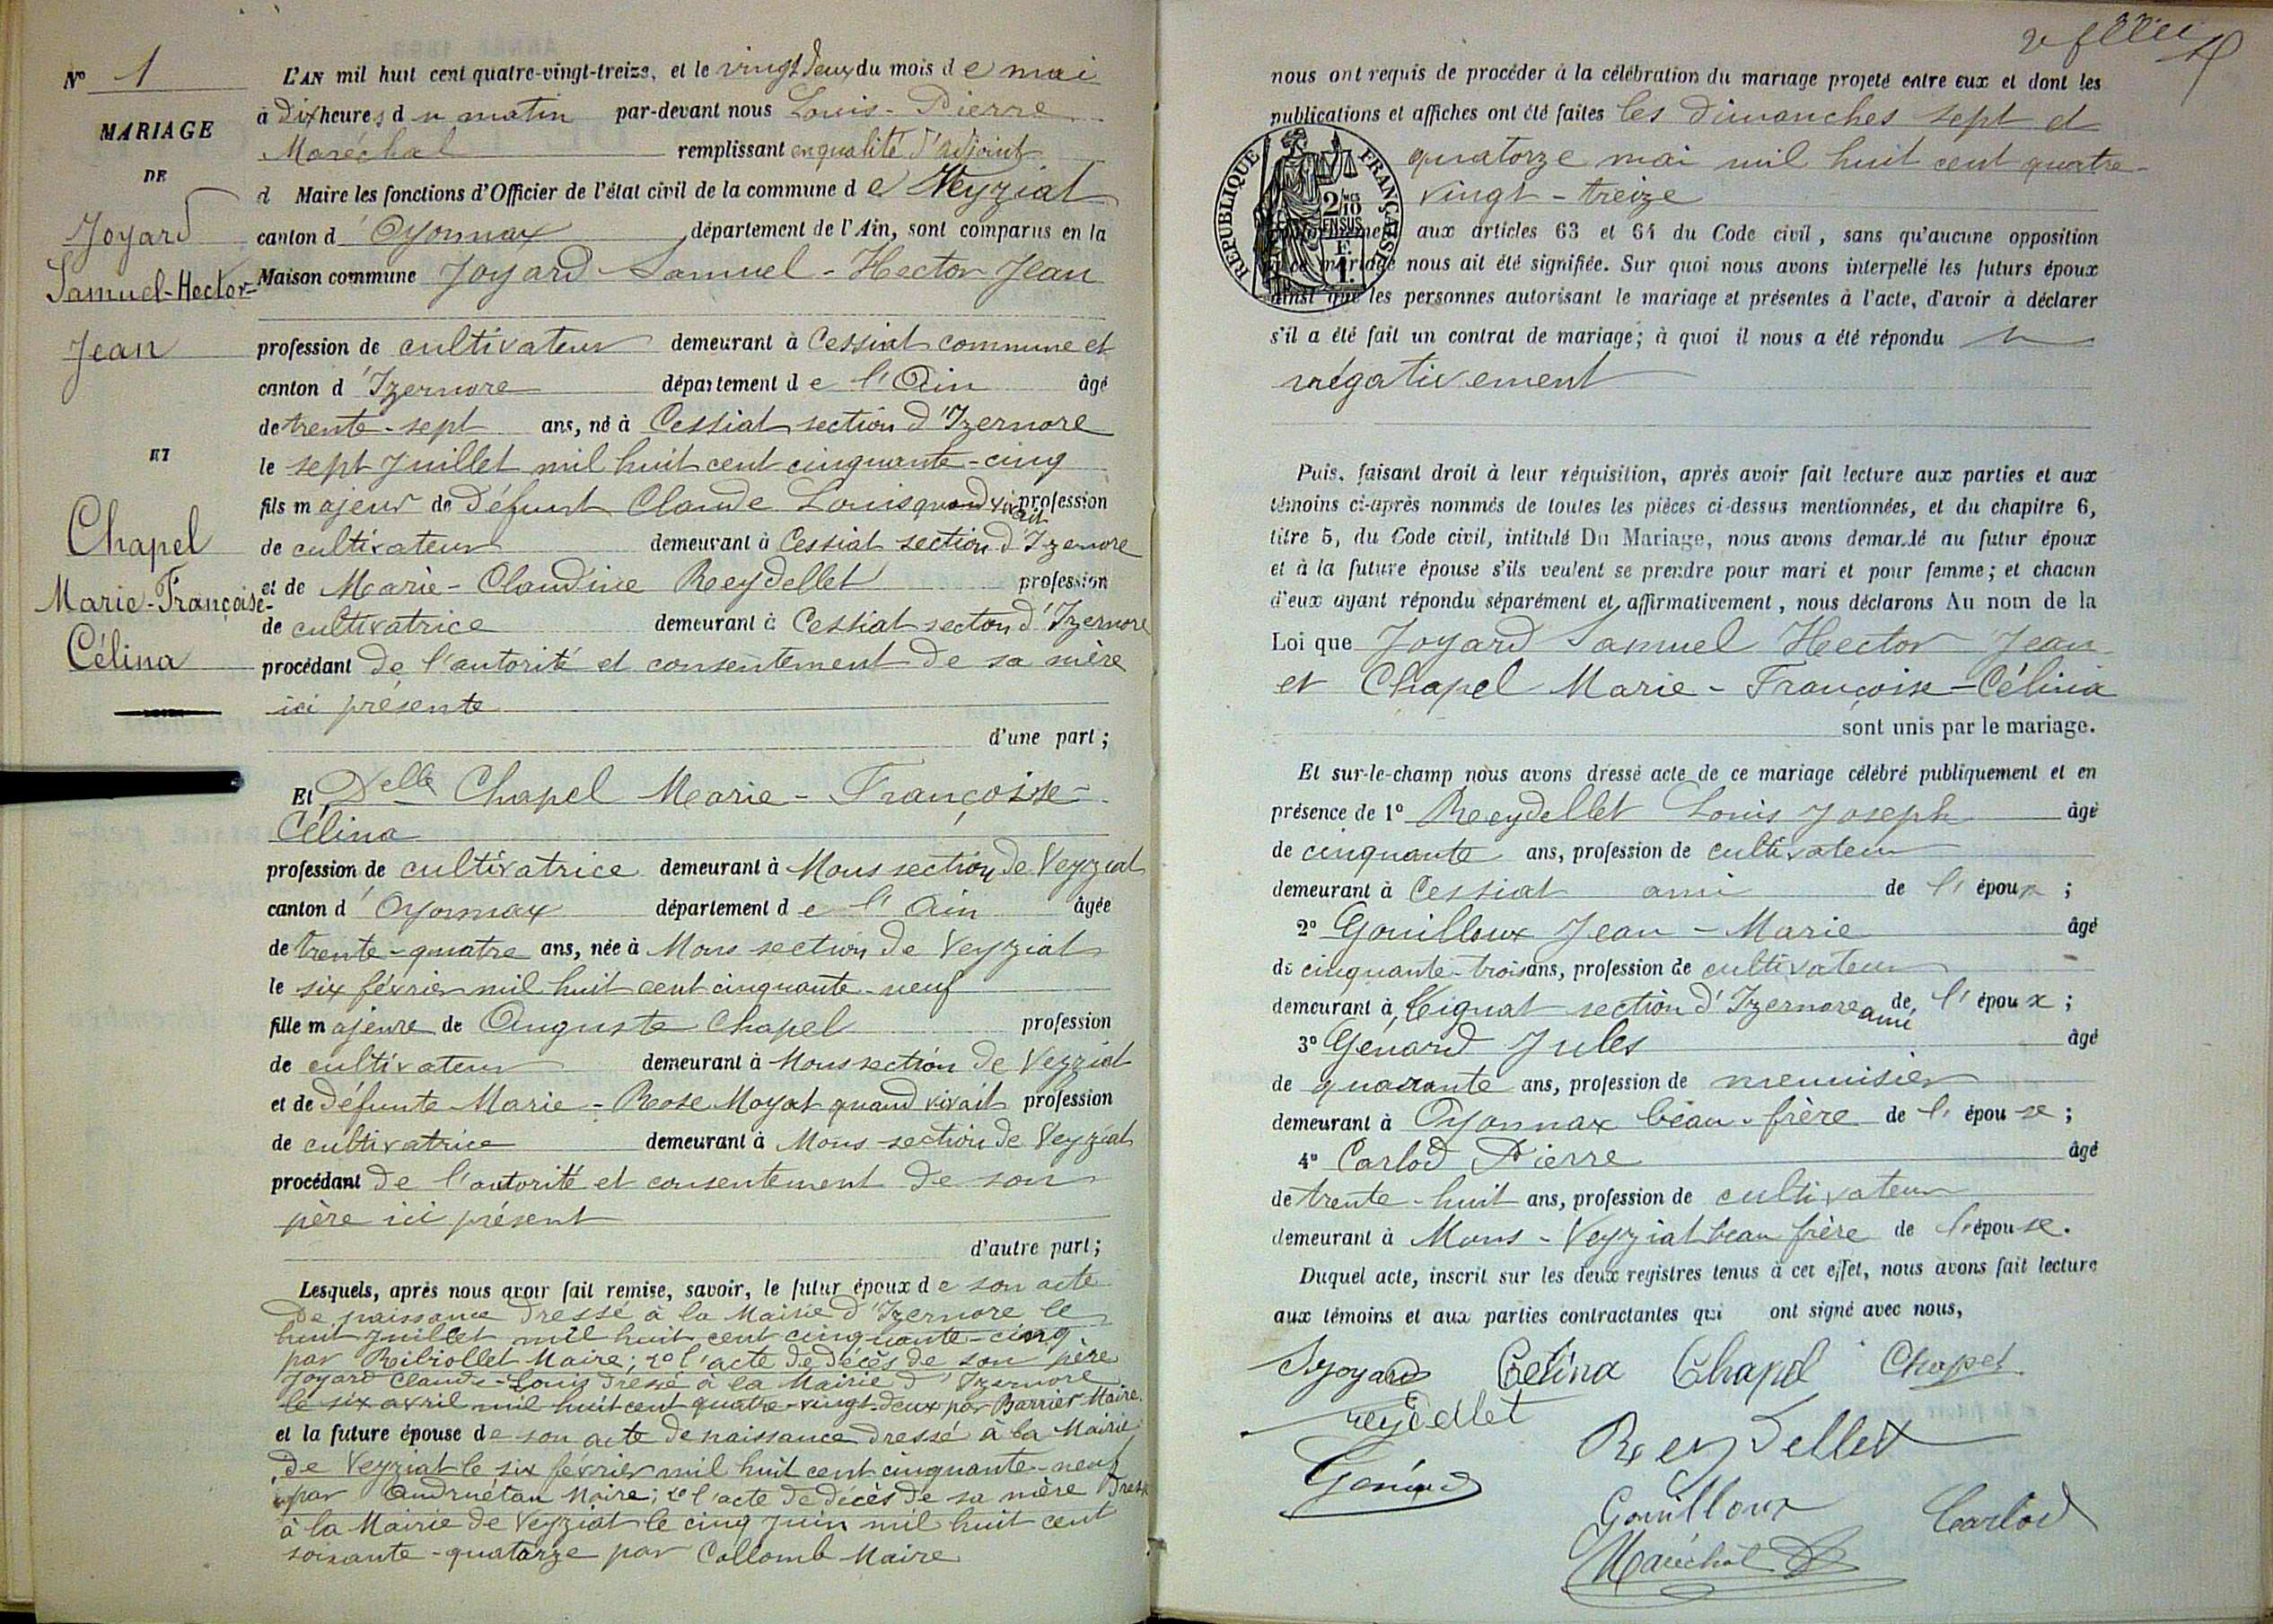 N° 1
MARIAGE
DE
Joyard
Samuel-Hector-
Jean
ET
Chapel
Marie-Françoise-
Célina
L'AN mil huit cent quatre-vingt-treize, et le vingt deux du mois de mai
à dix heures du matin par-devant nous Louis-Pierre
Maréchal remplissant en qualité d'adjoint
d Maire les fonctions d'Officier de l'état civil de la commune de Veyziat
canton d'Oyonnax département de l'Ain, sont comparus en la
Maison commune Joyard Samuel-Hector Jean
profession de cultivateur demeurant à Cessiat commune et
canton d'Izernore département de l'Ain âgé
de trente-sept ans, né à Cessiat section d'Izernore
le sept Juillet mil huit cent cinquante-cinq
fils majeur de défunt Claude Louis quand vivait profession
de cultivateur demeurant à Cessiat section d'Izernore
et de Marie-Claudine Reydellet profession
de cultivatrice demeurant à Cessiat secton d'Izernore
procédant de l'autorité et consentement de sa mère
ici présente
d'une part;
Et Delle Chapel Marie-Françoise-
Célina
profession de cultivatrice demeurant à Mons section de Veyziat
canton d'Oyonnax département de l'Ain âgée
de trente-quatre ans, née à Mons section de Veyziat
le six février mil huit cent cinquante-neuf
fille majeure de Auguste Chapel profession
de cultivateur demeurant à Mons section de Veyziat
et de défunte Marie-Rose Moyat quand vivait profession
de cultivatrice demeurant à Mons section de Veyziat
procédant de l'autorité et consentement de son
père ici présent
d'autre part;
Lesquels, après nous avoir fait remise, savoir, le futur époux de son acte
de naissance dressé à la Mairie d'Izernore le
huit juillet mil huit cent cinquante-cinq
par Ribiollet Maire; 2° l'acte de décès de son père
Joyard Claude-Louis dressé à la Mairie d'Izernore
le six avril mil huit cent quatre-vingt-deux par Barrier Maire.
et la future épouse de son acte de naissance dressé à la Mairie
de Veyziat le six février mil huit cent cinquante-neuf
par Andruétan Maire; 2° l'acte de décès de sa mère dressé
à la Mairie de Veyziat le cinq juin mil huit cent
soixante-quatorze par Collomb Maire
nous ont requis de procéder à la célébration du mariage projeté entre eux et dont les
publications et affiches ont été faites les dimanches sept et
quatorze mai mil huit cent quatre-
vingt-treize
REPUBLIQUE FRANÇAISE
2/10 EN SUS
aux articles 63 et 64 du Code civil, sans qu'aucune opposition
mariage nous ait été signifiée. Sur quoi nous avons interpellé les futurs époux
ainsi que les personnes autorisant le mariage et présentes à l'acte, d'avoir à déclarer
s'il a été fait un contrat de mariage; à quoi il nous a été répondu
négativement
Puis, faisant droit à leur réquisition, après avoir fait lecture aux parties et aux
témoins ci-après nommés de toutes les pièces ci-dessus mentionnées, et du chapitre 6,
titre 5, du Code civil, intitulé Du Mariage, nous avons demandé au futur époux
et à la future épouse s'ils veulent se prendre pour mari et pour femme; et chacun
d'eux ayant répondu séparément et affirmativement, nous déclarons Au nom de la
Loi que Joyard Samuel Hector Jean
et Chapel Marie-Françoise-Célina
sont unis par le mariage.
Et sur-le-champ nous avons dressé acte de ce mariage célébré publiquement et en
présence de 1° Reydellet Louis Joseph âgé
de cinquante ans, profession de cultivateur
demeurant à Cessiat ami de l'époux;
2° Gouilloux Jean-Marie âgé
de cinquante-trois ans, profession de cultivateur
demeurant à Ceignat section d'Izernore ami de l'époux;
3° Génard Jules âgé
de quarante ans, profession de menuisier
demeurant à Oyonnax beau-frère de l'épouse;
4° Carlod Pierre âgé
de trente-huit ans, profession de cultivateur
demeurant à Mons-Veyziat beau frère de l'épouse.
Duquel acte, inscrit sur les deux registres tenus à cet effet, nous avons fait lecture
aux témoins et aux parties contractantes qui ont signé avec nous,
S Joyard Celina Chapel Chapel
reydellet
Reydellet
Génard
Gouilloux Carlod
Maréchal